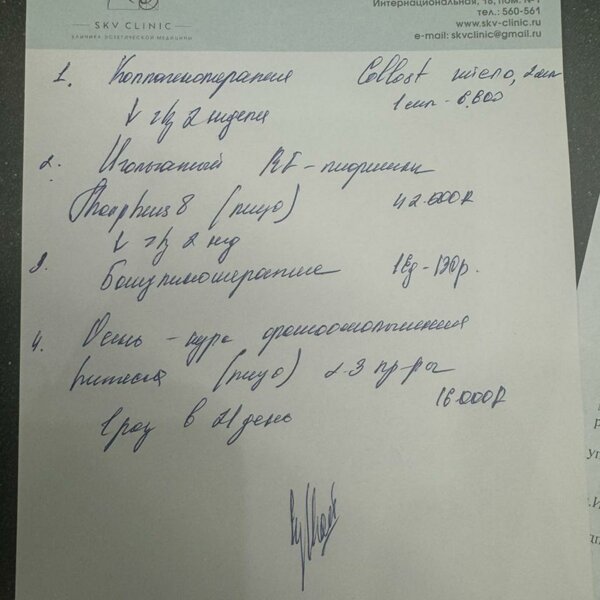 Интернациональная, 18, пом. №1
SKV CLINIC
тел.: 560-561
КЛИНИКА ЭСТЕТИЧЕСКОЙ МЕДИЦИНЫ
www.skv-clinic.ru
e-mail: skvclinic@gmail.ru
1. Коллагенотерапия Collost тело, 2 мл
↓ ч/з 2 недели 1 мл - 6.800
2. Игольчатый RF-лифтинг
Morpheus 8 (лицо) 42.000₽
↓ ч/з 2 нед
3. Ботулинотерапия 1ед - 130р.
4. Осень - курс фотоомоложения
(лицо) 2-3 пр-ры
16.000₽
1 раз в 21 день